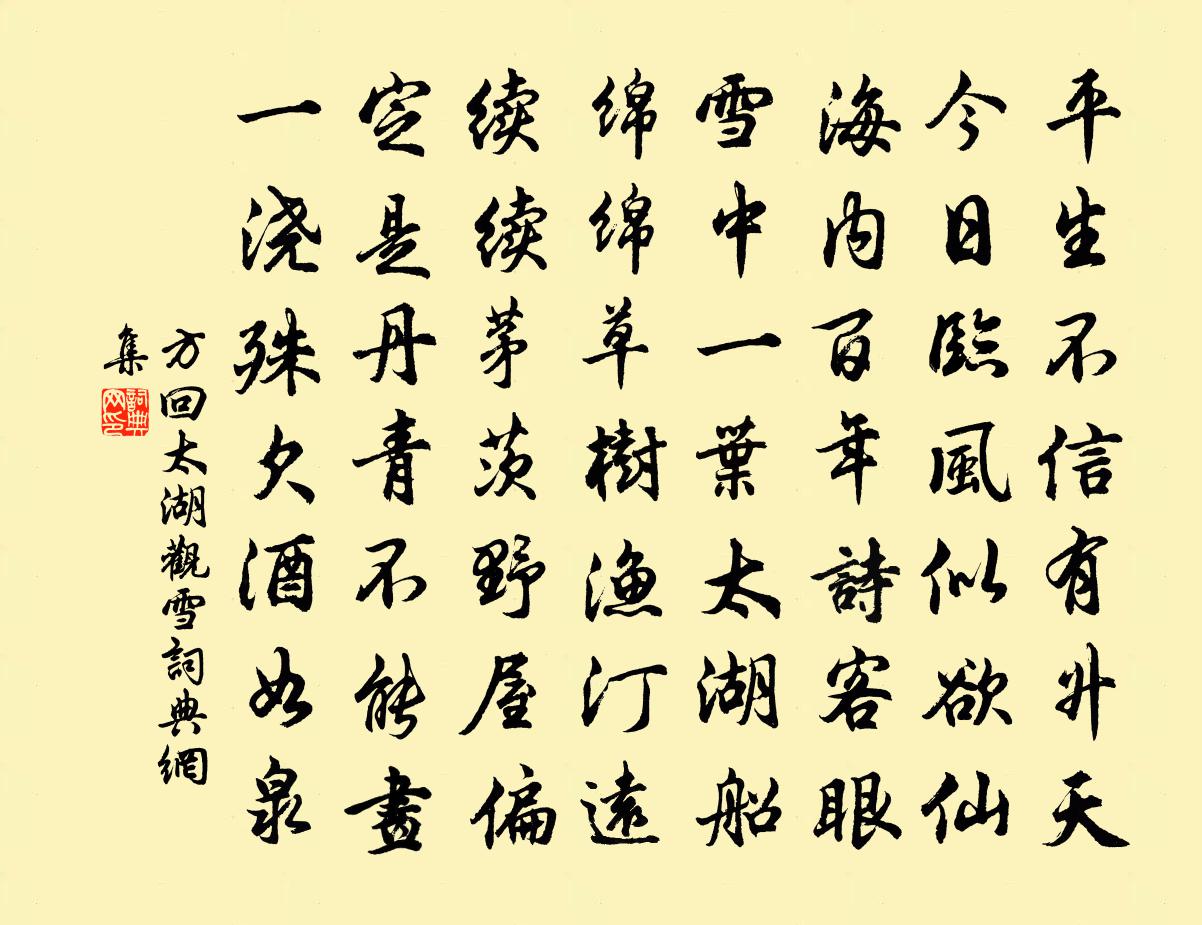 平生不信有升天
今日臨風似欲仙
海内百年詩客眼
雪中一葉太湖船
绵绵草樹漁汀遠
续续茅茨野屋偏
定是丹青不能畫
一浇殊欠酒如泉
方回太湖觀雪詞典網
集
詞典网印